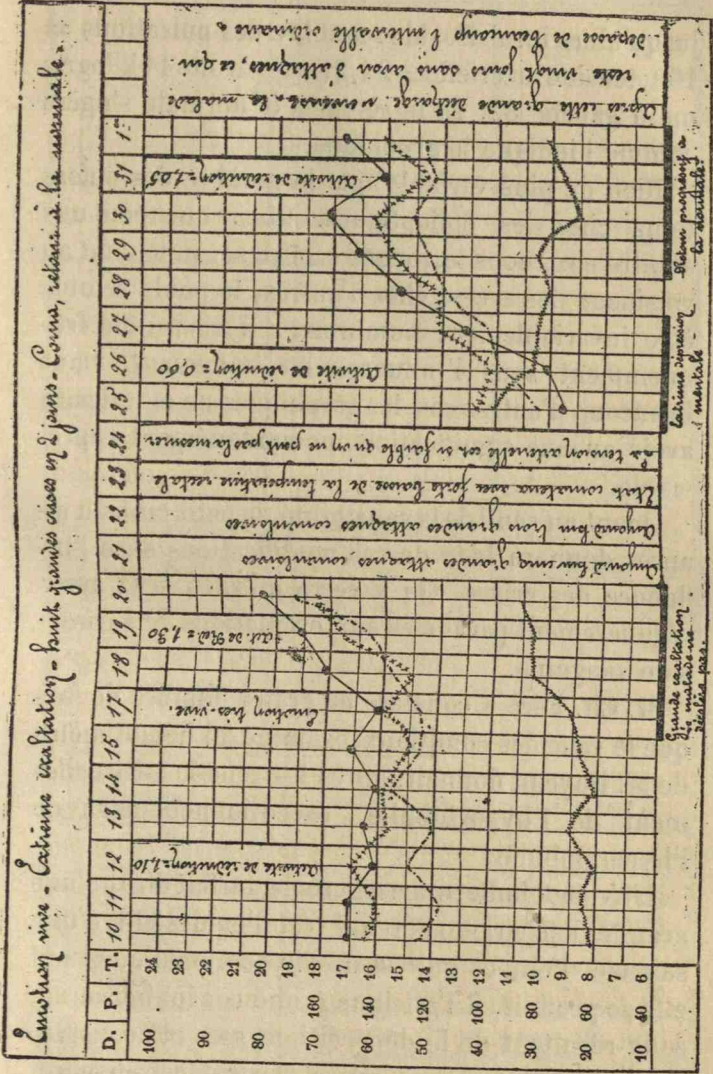 Emotion vive - Extrême exaltation - huit grandes crises en 2 jours - Coma, retour à la normale.
D. P. T. 10 11 12 13 14 15 17 18 19 20 21 22 23 24 25 26 27 28 29 30 31 1er
100 24
23
90 22
21
80 20
19
70 160 18
17
60 140 16
15
50 120 14
13
40 100 12
11
30 80 10
9
20 60 8
7
10 40 6
activité de réduction = 1,10
Emotion très-vive.
act. de Réd = 1,30
Aujourd'hui cinq grandes attaques convulsives
Aujourd'hui trois grandes attaques convulsives
Etat comateux avec forte baisse de la température rectale
La tension artérielle est si faible qu'on ne peut pas la mesurer
activité de réduction = 0,60
activité de réduction = 1,05
Après cette grande décharge nerveuse, la malade
reste vingt jours sans avoir d'attaques, ce qui
dépasse de beaucoup l'intervalle ordinaire.
Grande exaltation.
la malade ne
décolère pas.
Extrême dépression
mentale -
Retour progressif à
la normale.